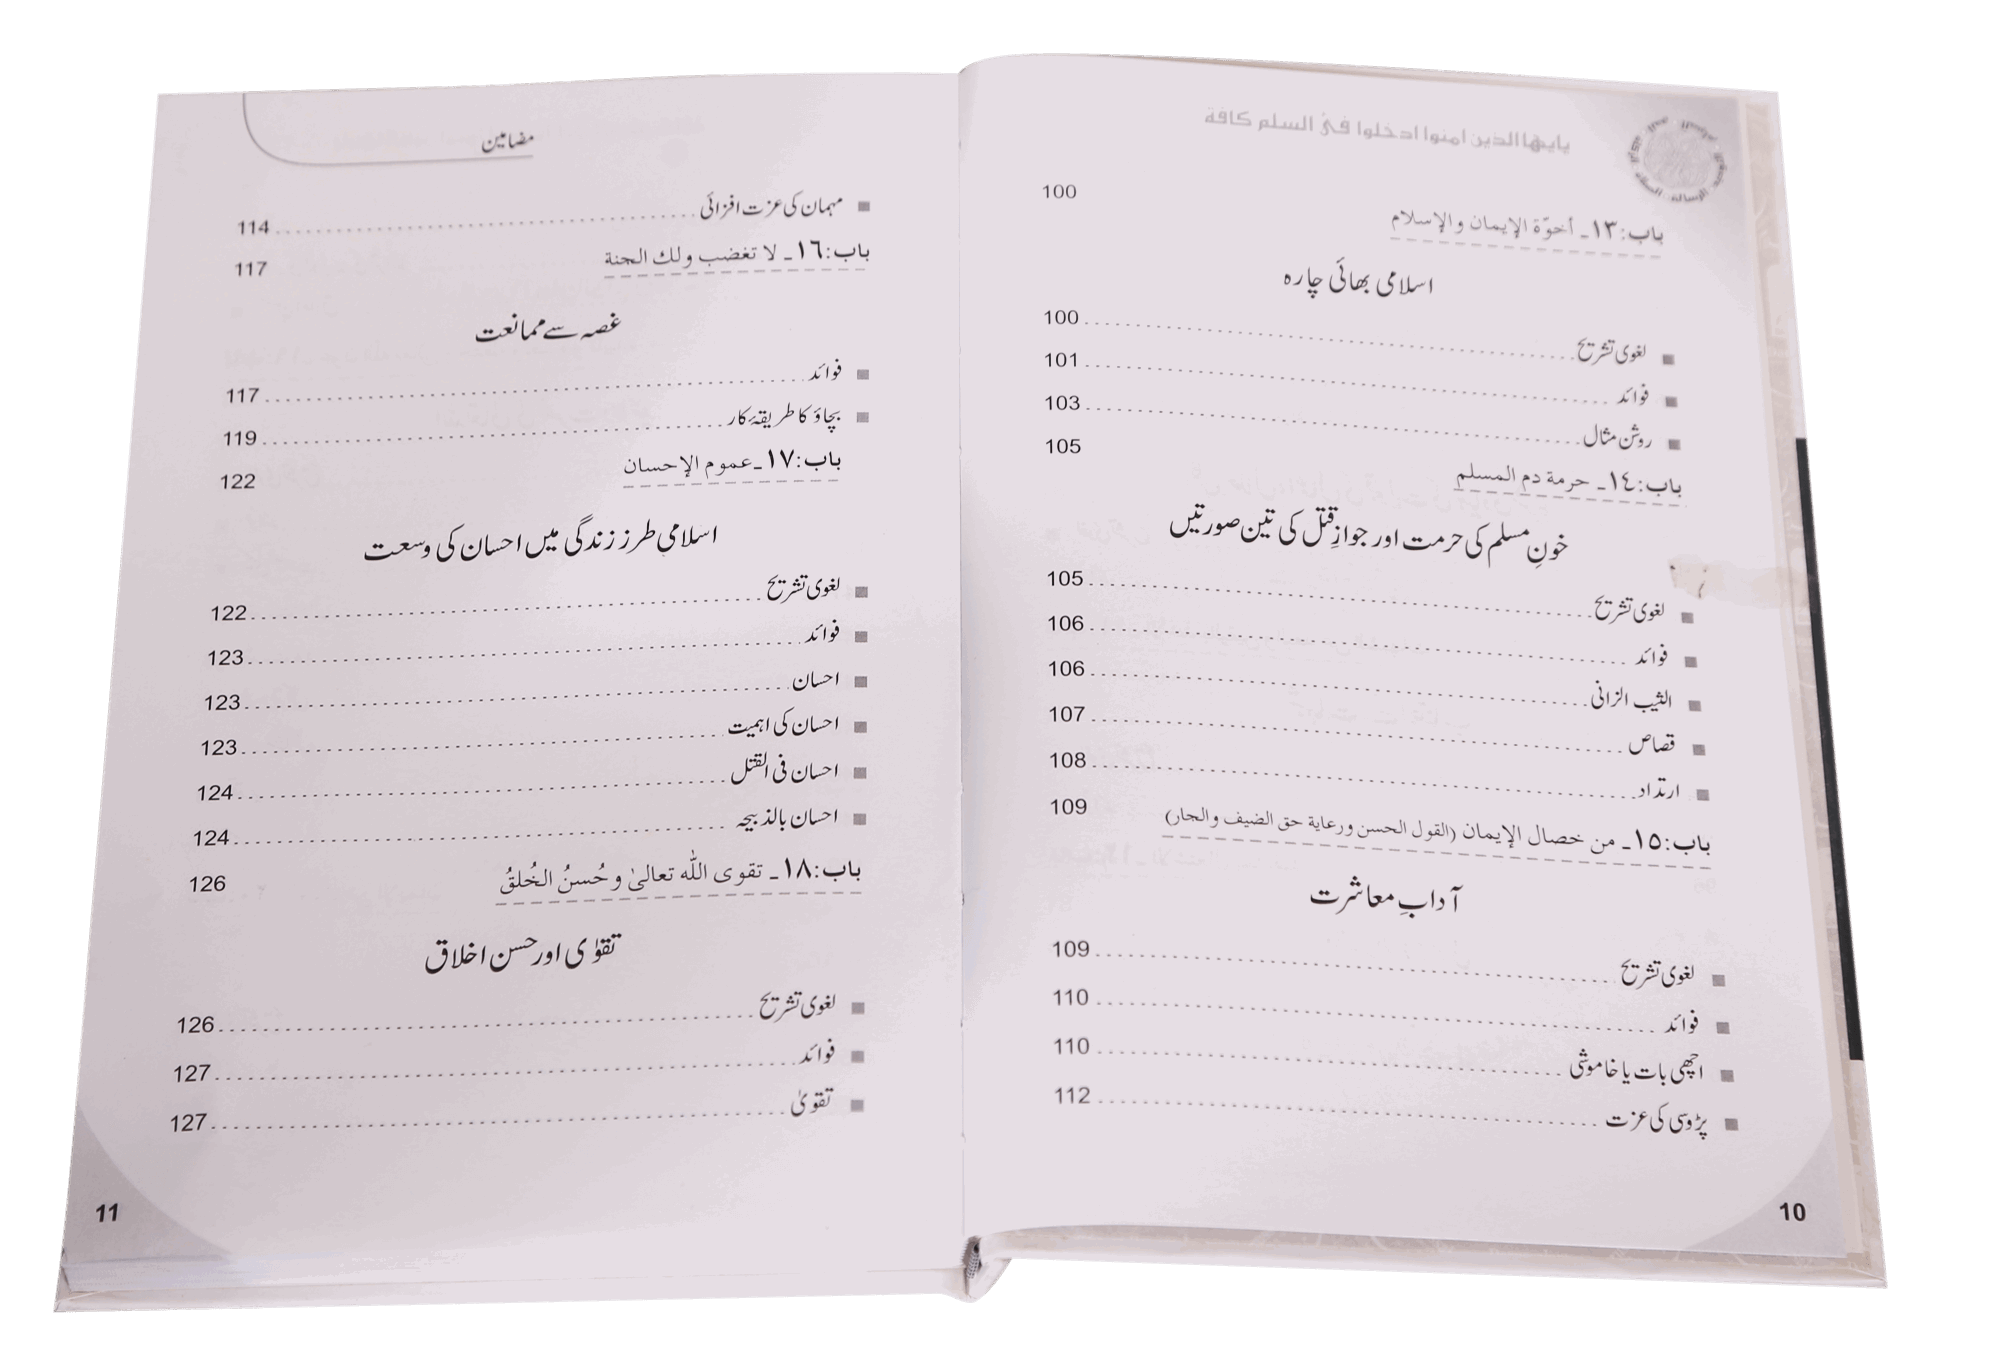 يايها الذين امنوا ادخلوا في السلم كافة
باب:١٣ـ أخوّة الإيمان والإسلام 100
اسلامی بھائی چارہ
■ لغوی تشریح 100
■ فوائد 101
■ روشن مثال 103
باب:١٤ـ حرمة دم المسلم 105
خونِ مسلم کی حرمت اور جوازِ قتل کی تین صورتیں
■ لغوی تشریح 105
■ فوائد 106
■ الثیب الزانی 106
■ قصاص 107
■ ارتداد 108
باب:١٥ـ من خصال الإيمان (القول الحسن ورعاية حق الضيف والجار) 109
آدابِ معاشرت
■ لغوی تشریح 109
■ فوائد 110
■ اچھی بات یا خاموشی 110
■ پڑوسی کی عزت 112
10
مضامین
■ مہمان کی عزت افزائی 114
باب:١٦ـ لا تغضب ولك الجنة 117
غصہ سے ممانعت
■ فوائد 117
■ بچاؤ کا طریقۂ کار 119
باب:١٧ـ عموم الإحسان 122
اسلامی طرز زندگی میں احسان کی وسعت
■ لغوی تشریح 122
■ فوائد 123
■ احسان 123
■ احسان کی اہمیت 123
■ احسان فی القتل 124
■ احسان بالذبیحہ 124
باب:١٨ـ تقوى الله تعالىٰ وحُسنُ الخُلقُ 126
تقوٰی اور حسن اخلاق
■ لغوی تشریح 126
■ فوائد 127
■ تقویٰ 127
11